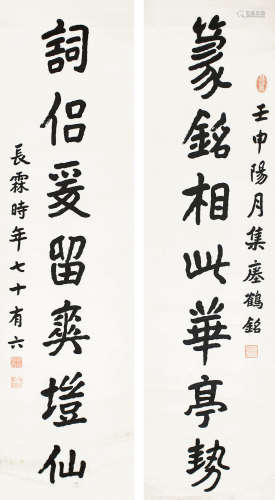 篆銘相此華亭勢
壬申陽月集廛鶴銘
詞侶爰留爽塏仙
長霖時年七十有六